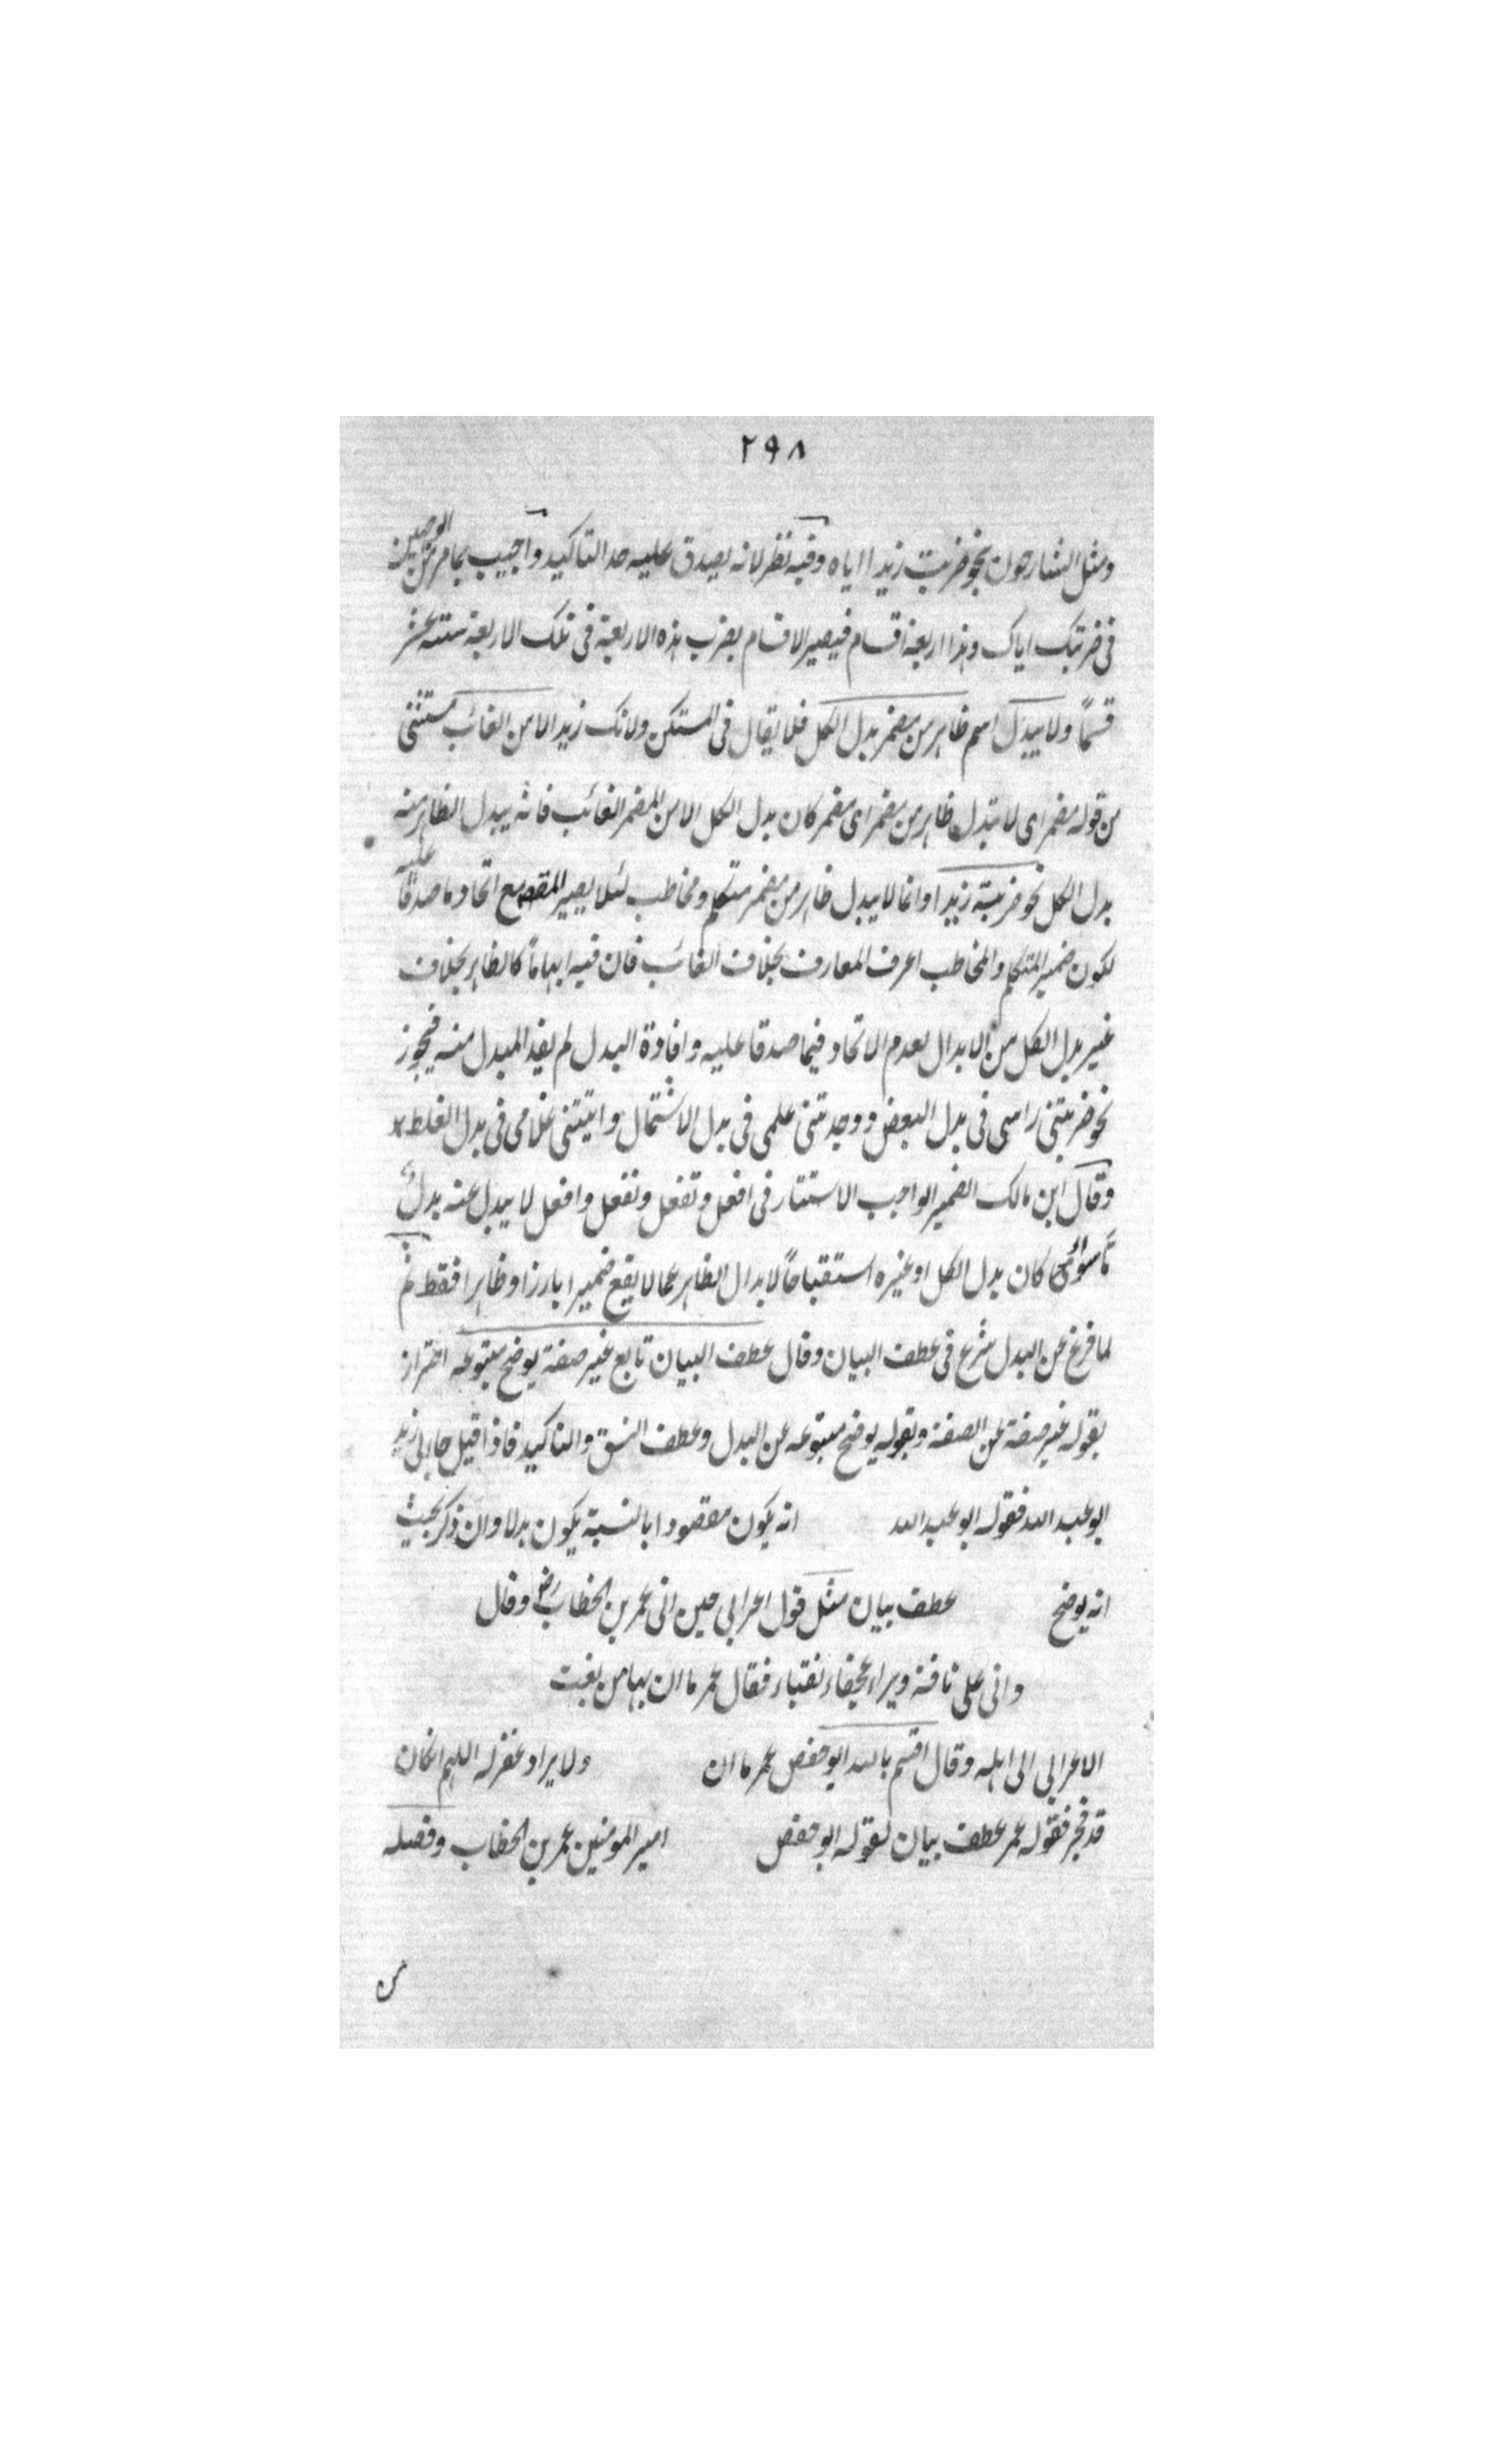 ٢٩٨
ومثل الشارحون بنحو ضربت زيدا اياه وفيه نظر لانه يصدق عليه حد التاكيد واجيب بما مر من الوجهين
فى ضربتك اياك وهذا اربعة اقسام فيصير الاقسام بضرب هذه الاربعة فى تلك الاربعة ستة عشر
قسمًا ولا يبدل اسم ظاهر من مضمر بدل الكل فلا يقال فى المسكن ولانك زيد الا من الغائب مستثنى
من قوله مضمر اى لا تبدل ظاهر من مضمر اى مضمر كان بدل الكل الا من المضمر الغائب فانه يبدل الظاهر منه
بدل الكل نحو ضربته زيدا وانما لا يبدل ظاهر من مضمر متكلم ومخاطب لئلا يصير المقصود مع اتحاد ما صدقا عليه
لكون ضمير المتكلم والمخاطب اعرف المعارف بخلاف الغائب فان فيه ابهامًا كالظاهر بخلاف
غير بدل الكل من الابدال لعدم الاتحاد فيما صدقا عليه وافادة البدل لم يفد المبدل منه فيجوز
نحو ضربتنى راسى فى بدل البعض ووجدتنى علمى فى بدل الاشتمال واتيتنى غلامى فى بدل الغلط
وقال ابن مالك الضمير الواجب الاستتار فى افعل وتفعل ونفعل وافعل لا يبدل عنه بدل
ما سواء كان بدل الكل او غيره استقباحًا لابدال الظاهر عما لا يقع ضميرا بارزا وظاهرا فقط ثم
لما فرغ عن البدل شرع فى عطف البيان وقال عطف البيان تابع غير صفة يوضح متبوعه احتراز
بقوله غير صفة عن الصفة وبقوله يوضح متبوعه عن البدل وعطف النسق والتاكيد فاذا قيل جاءنى زيد
ابو عبد الله فقوله ابو عبد الله انه يكون مقصودا بالنسبة يكون بدلا وان ذكر بحيث
انه يوضح عطف بيان مثل قول اعرابى حين اتى عمر بن الخطاب رض وقال
وانى على ناقة وبراء عجفاء نقباء فقال عمر ما ان بها من نقب
الاعرابى الى اهله وقال اقسم بالله ابو حفص عمر ما ان ولا براد غفر له اللهم انكان
قد فجر فقوله عمر عطف بيان لقوله ابو حفص امير المومنين عمر بن الخطاب وفصله
من